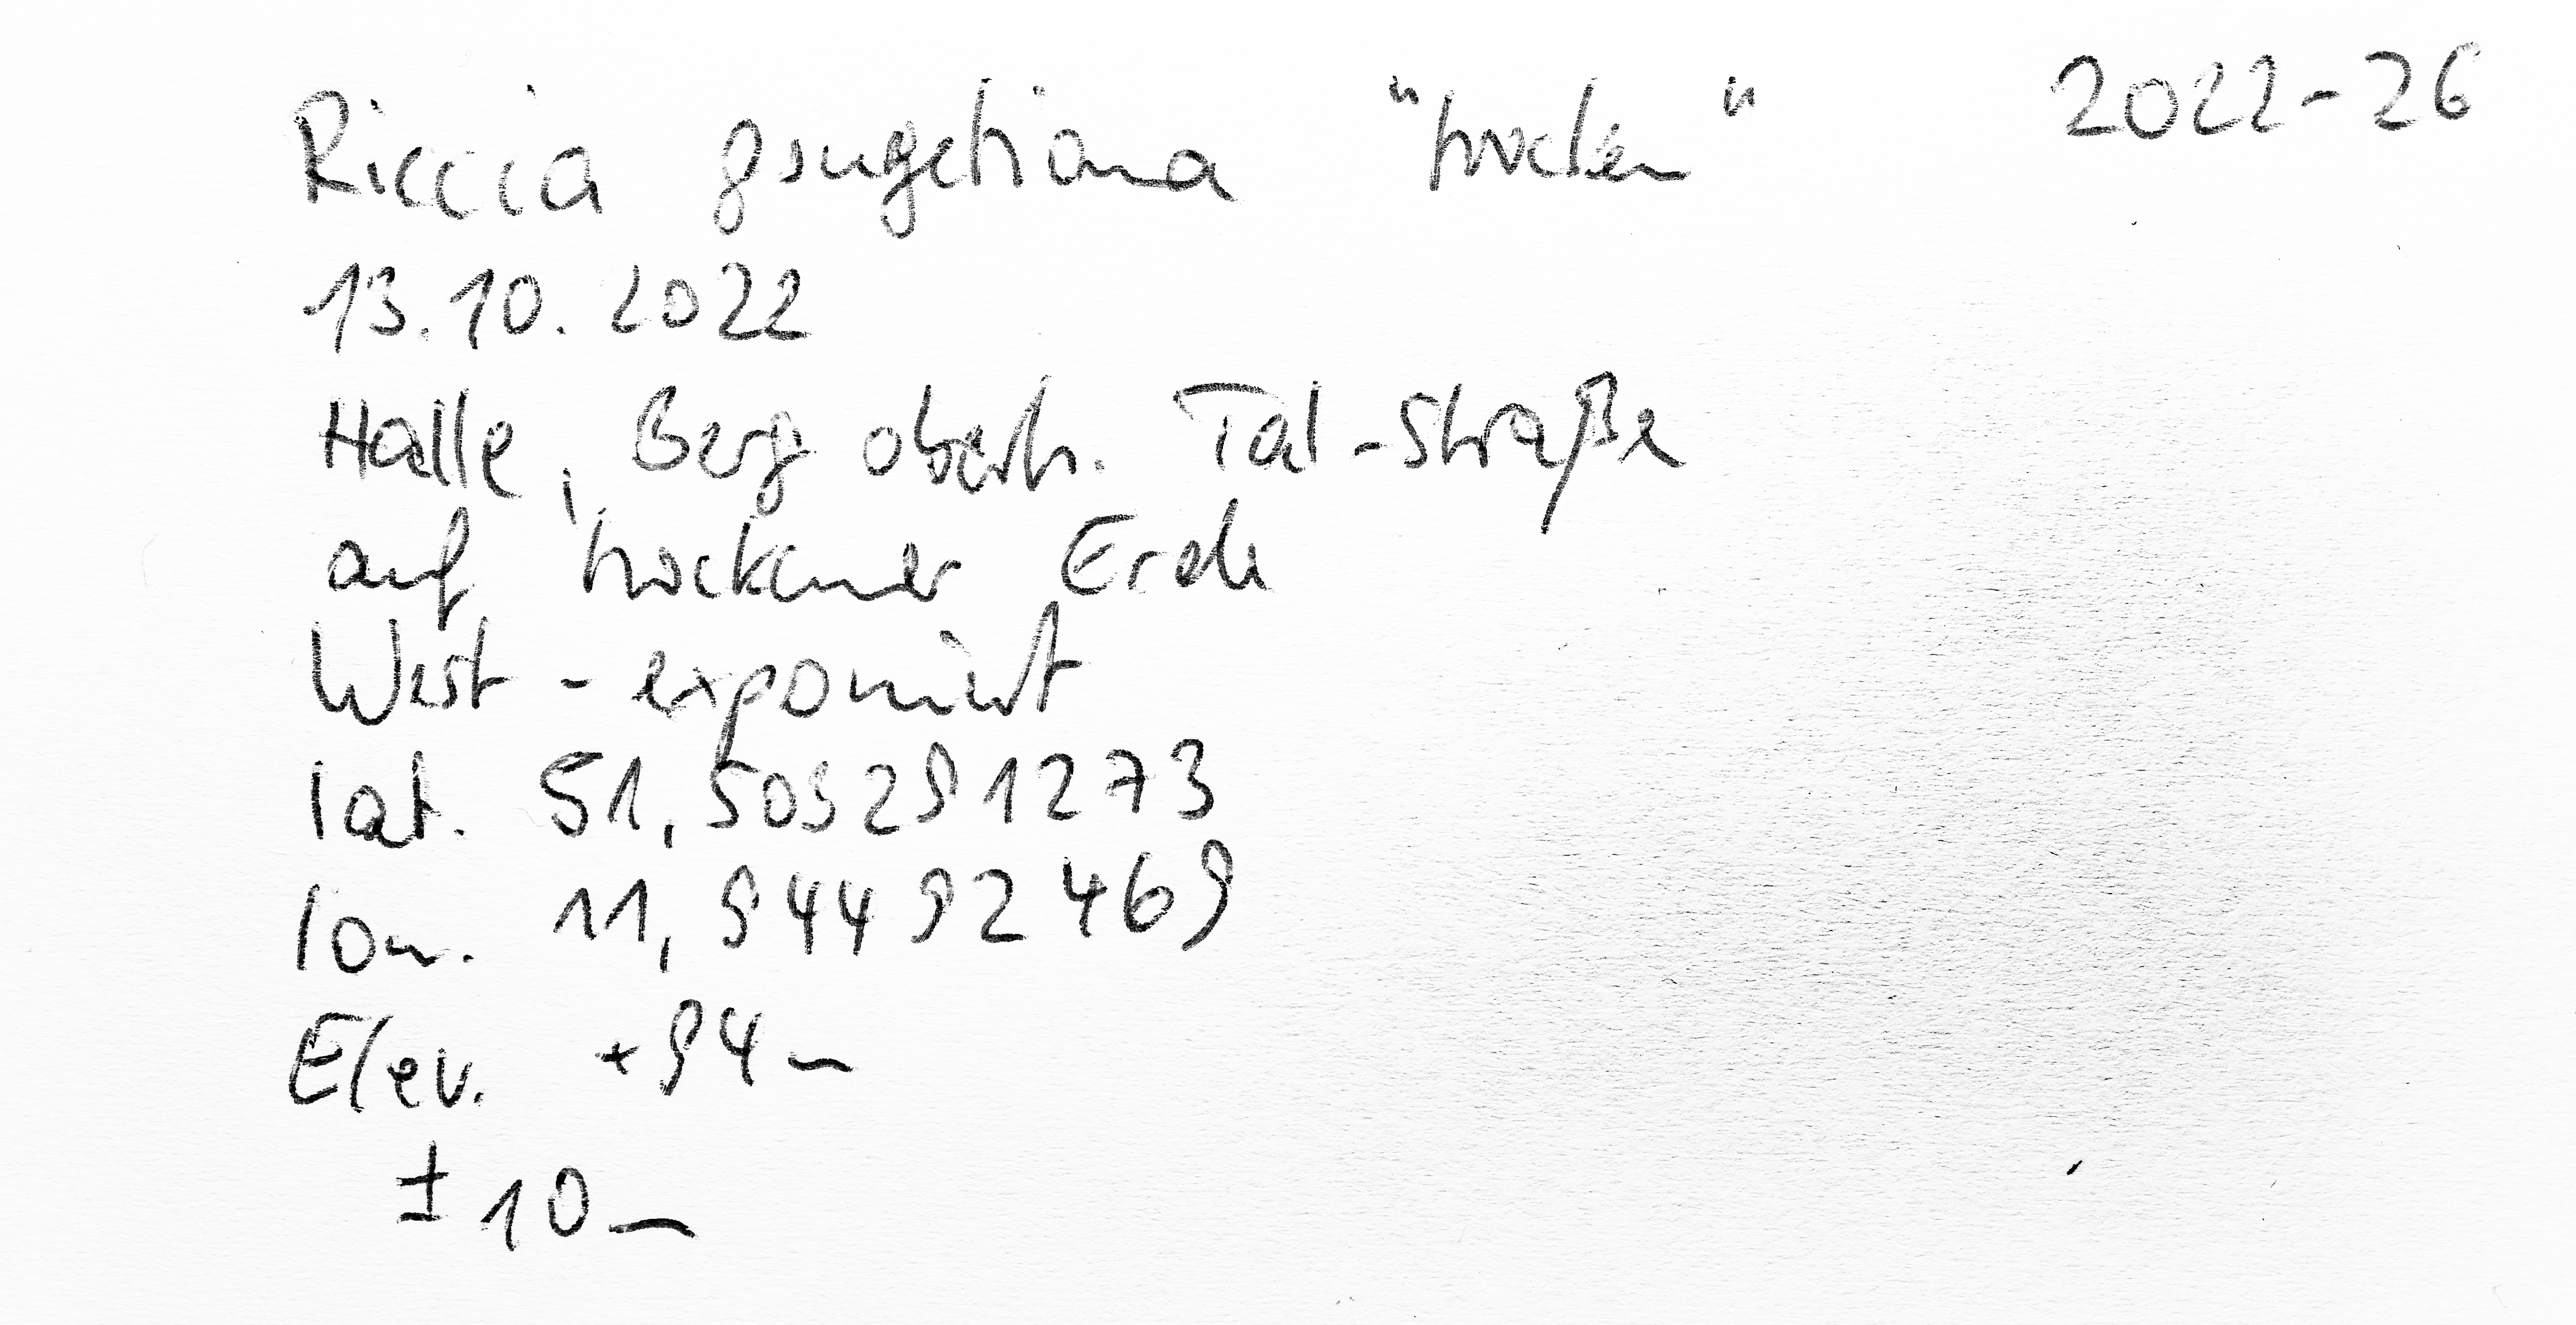 Riccia gougetiana "trocken" 2022-26
13.10.2022
Halle, Berg oberh. Tal-Straße
auf trockener Erde
West-exponiert
lat. 51,503291273
lon. 11,94492469
Elev. +94m
±10m